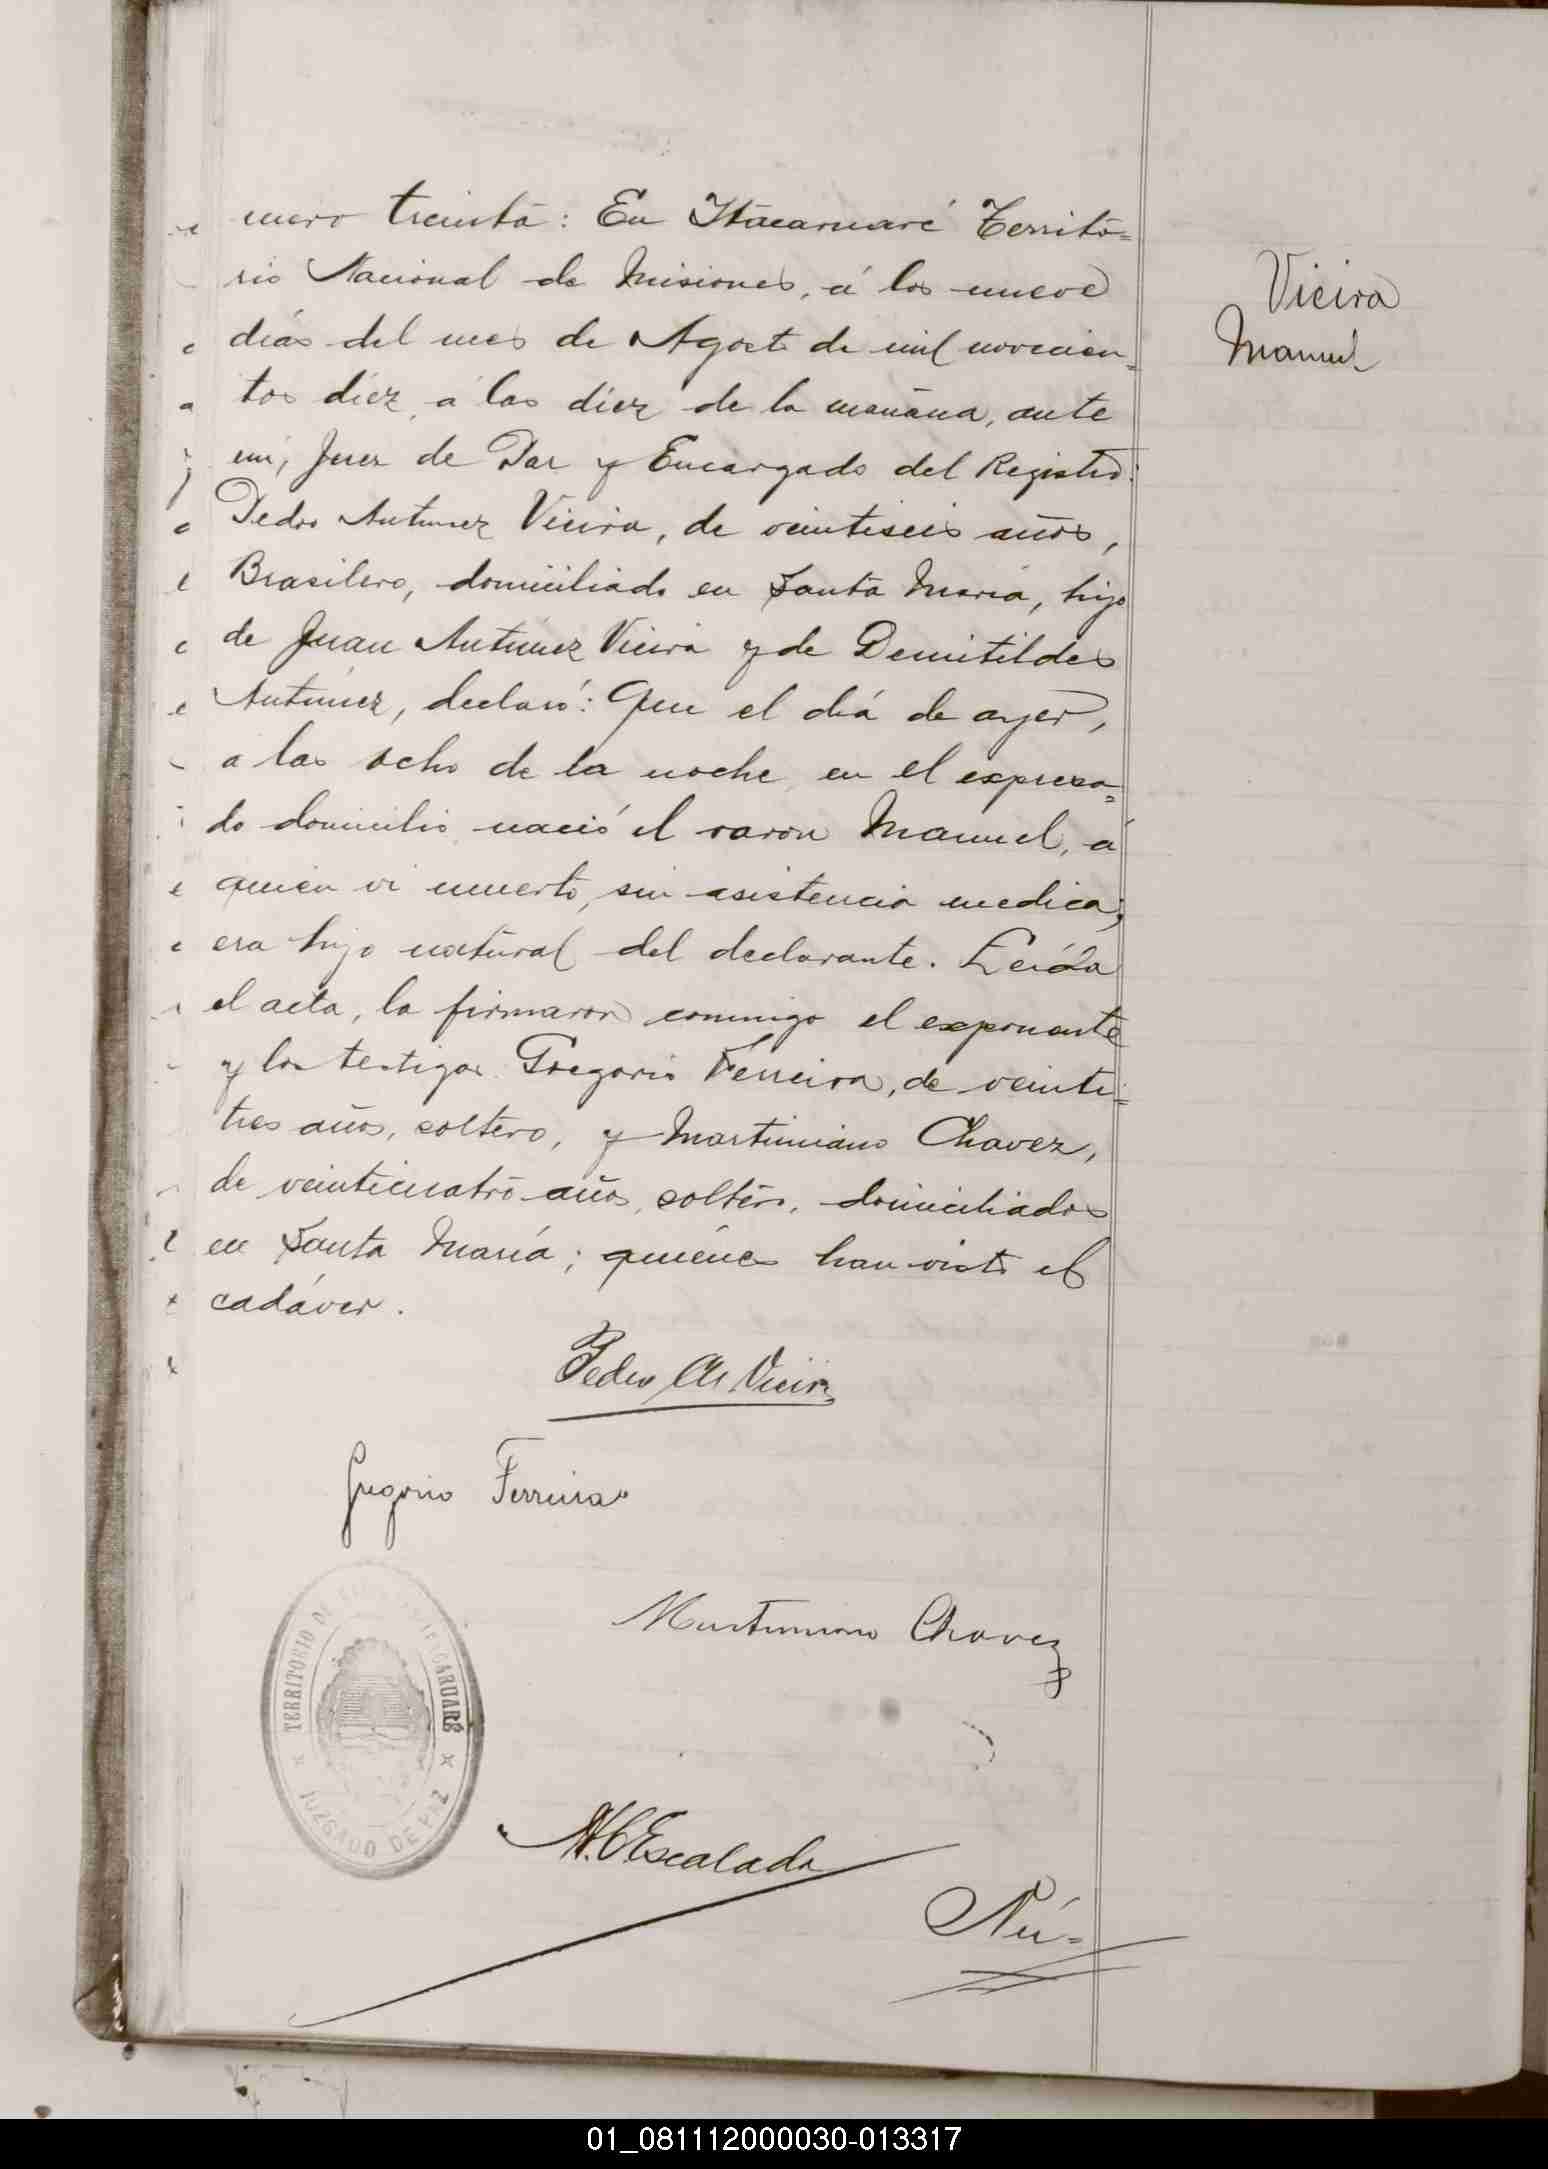 mero treinta: En Itacaruaré Territo=
rio Nacional de Misiones, á los nueve
días del mes de Agosto de mil novecien=
tos diez, á las diez de la mañana, ante
mí, Juez de Paz y Encargado del Registro:
Pedro Antunez Vieira, de veintiseis años,
Brasilero, domiciliado en Santa María, hijo
de Juan Antúnez Vieira y de Demitildes
Antúnez, declaró: Que el día de ayer,
a las ocho de la noche, en el expresa=
do domicilio nació el varon Manuel, á
quien vi muerto, sin asistencia medica;
era hijo natural del declarante. Leída
el acta, la firmaron conmigo el exponente
y los testigos Gregorio Ferreira, de veinti=
tres años, soltero, y Martiniano Chavez,
de veinticuatro años, soltero, domiciliados
en Santa María; quiénes han visto el
cadáver.
Vieira
Manuel
Pedro An Vieira
Gregorio Ferreira
Martiniano Chavez
TERRITORIO DE ITACARUARÉ
JUZGADO DE PAZ
Escalada
Nú=
01_081112000030-013317